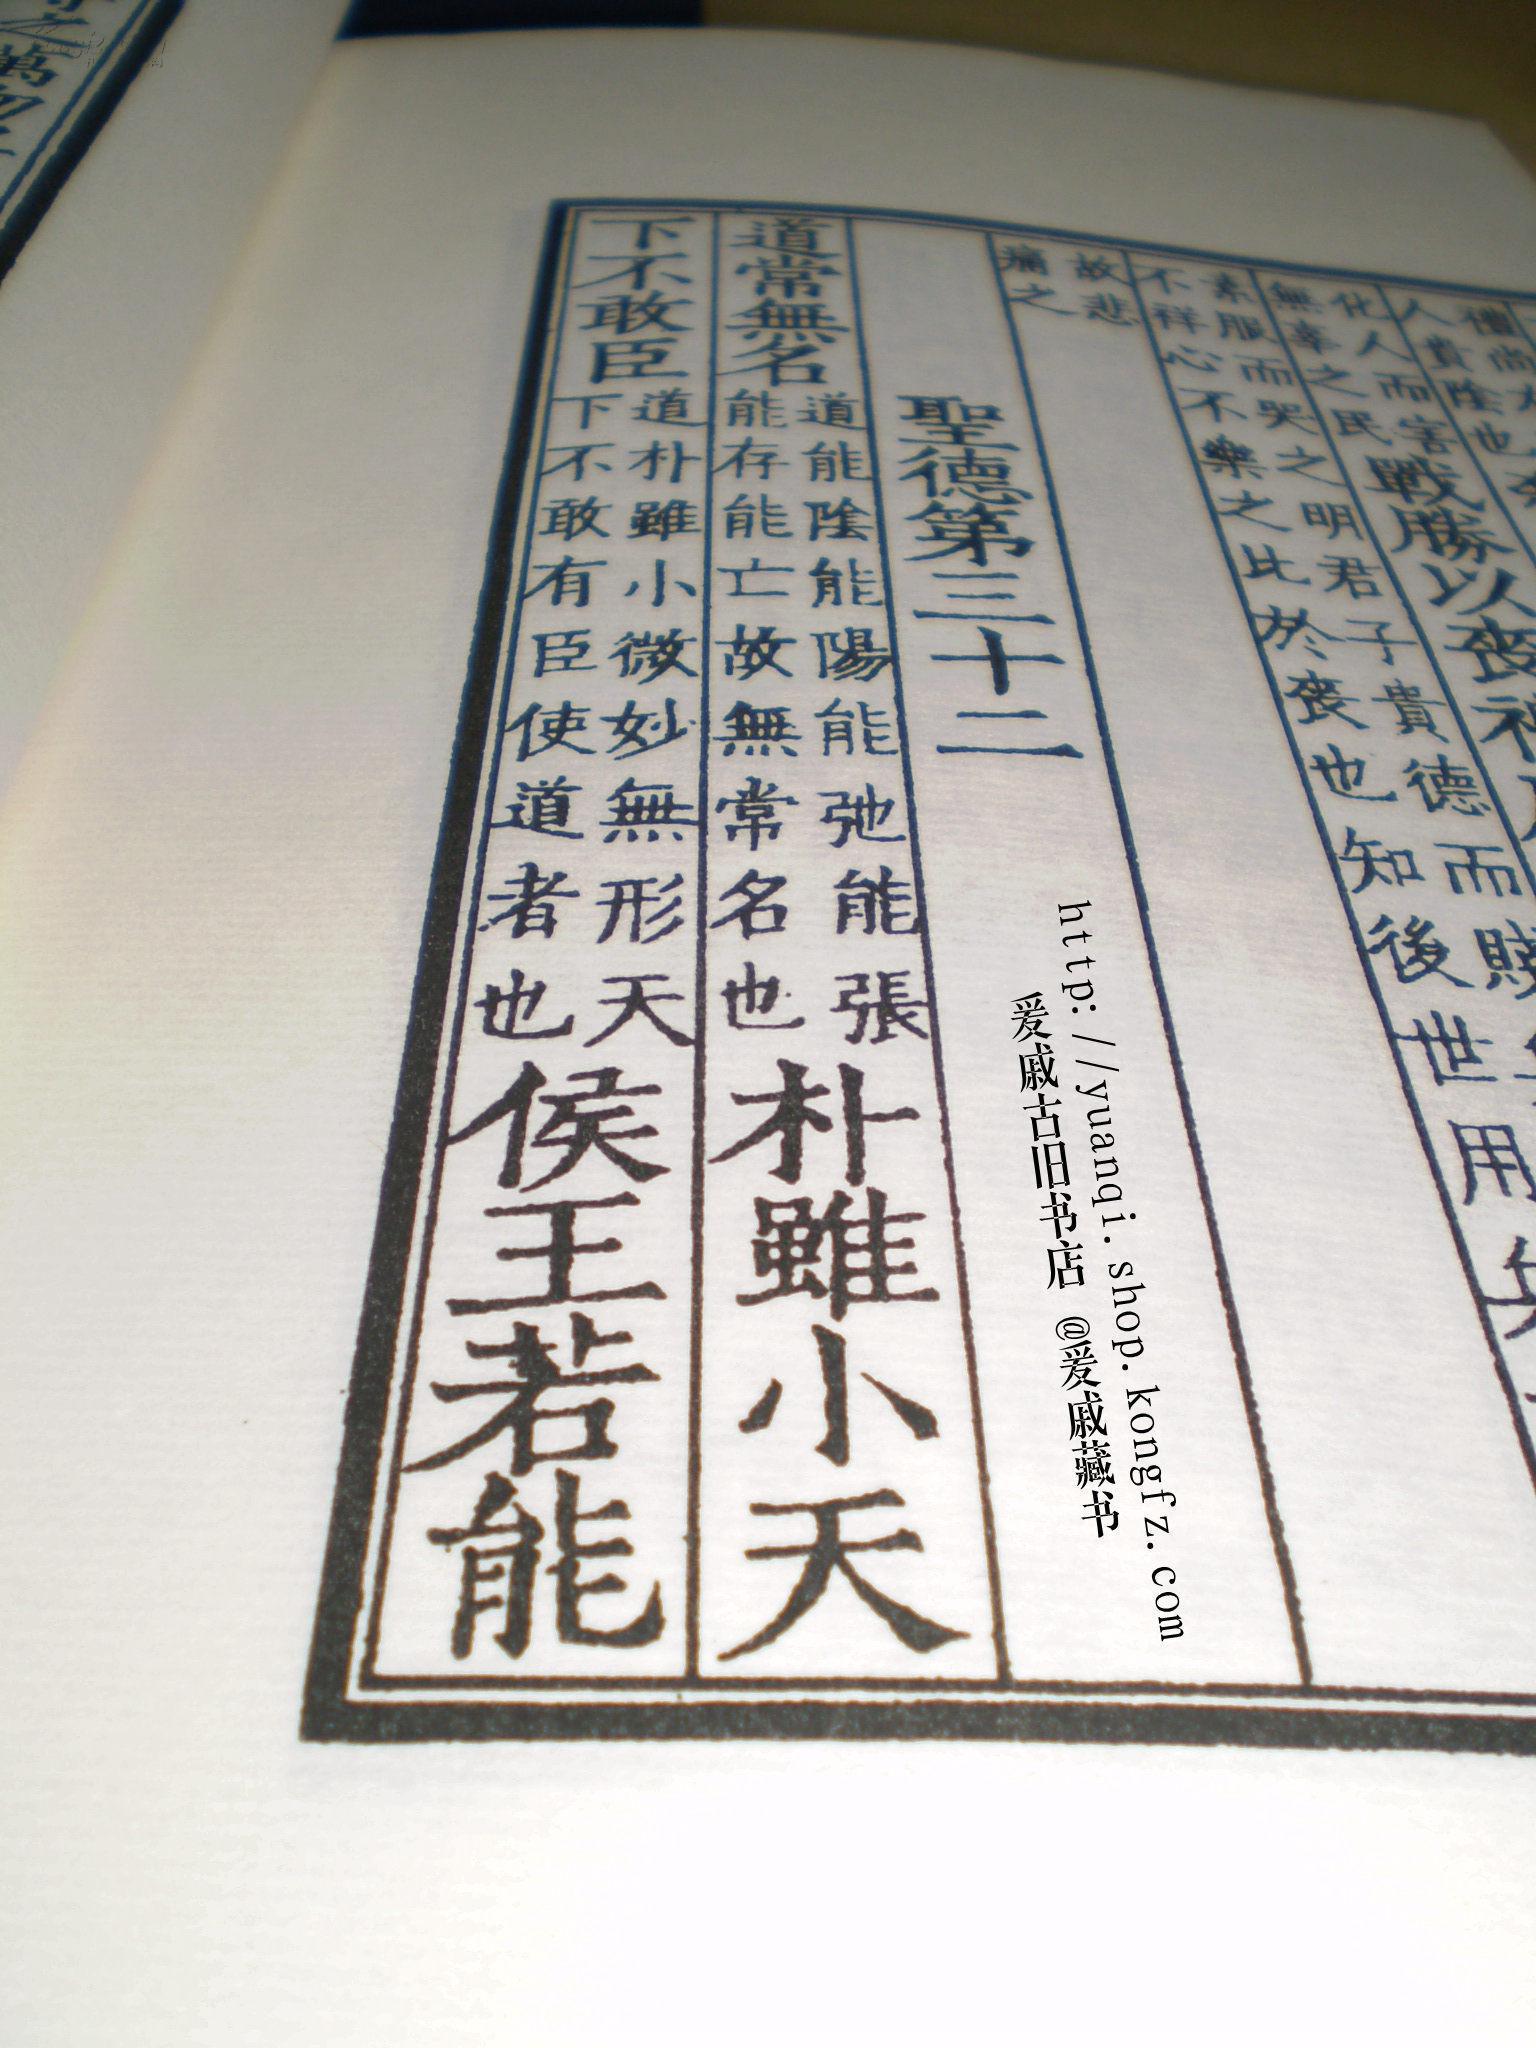 禮尚
人貴陰也
化人而害
無辜之民
戰勝以喪
素服而哭之明君子貴德而賤
不祥心不樂之比於喪也知後世用
故悲
痛之
聖德第三十二
道常無名
道能陰能陽能弛能張
能存能亡故無常名也
朴雖小天
下不敢臣
道朴雖小微妙無形天
下不敢有臣使道者也
侯王若能
之萬物
http://yuanqi.shop.kongfz.com
爰戚古旧书店 @爰戚藏书